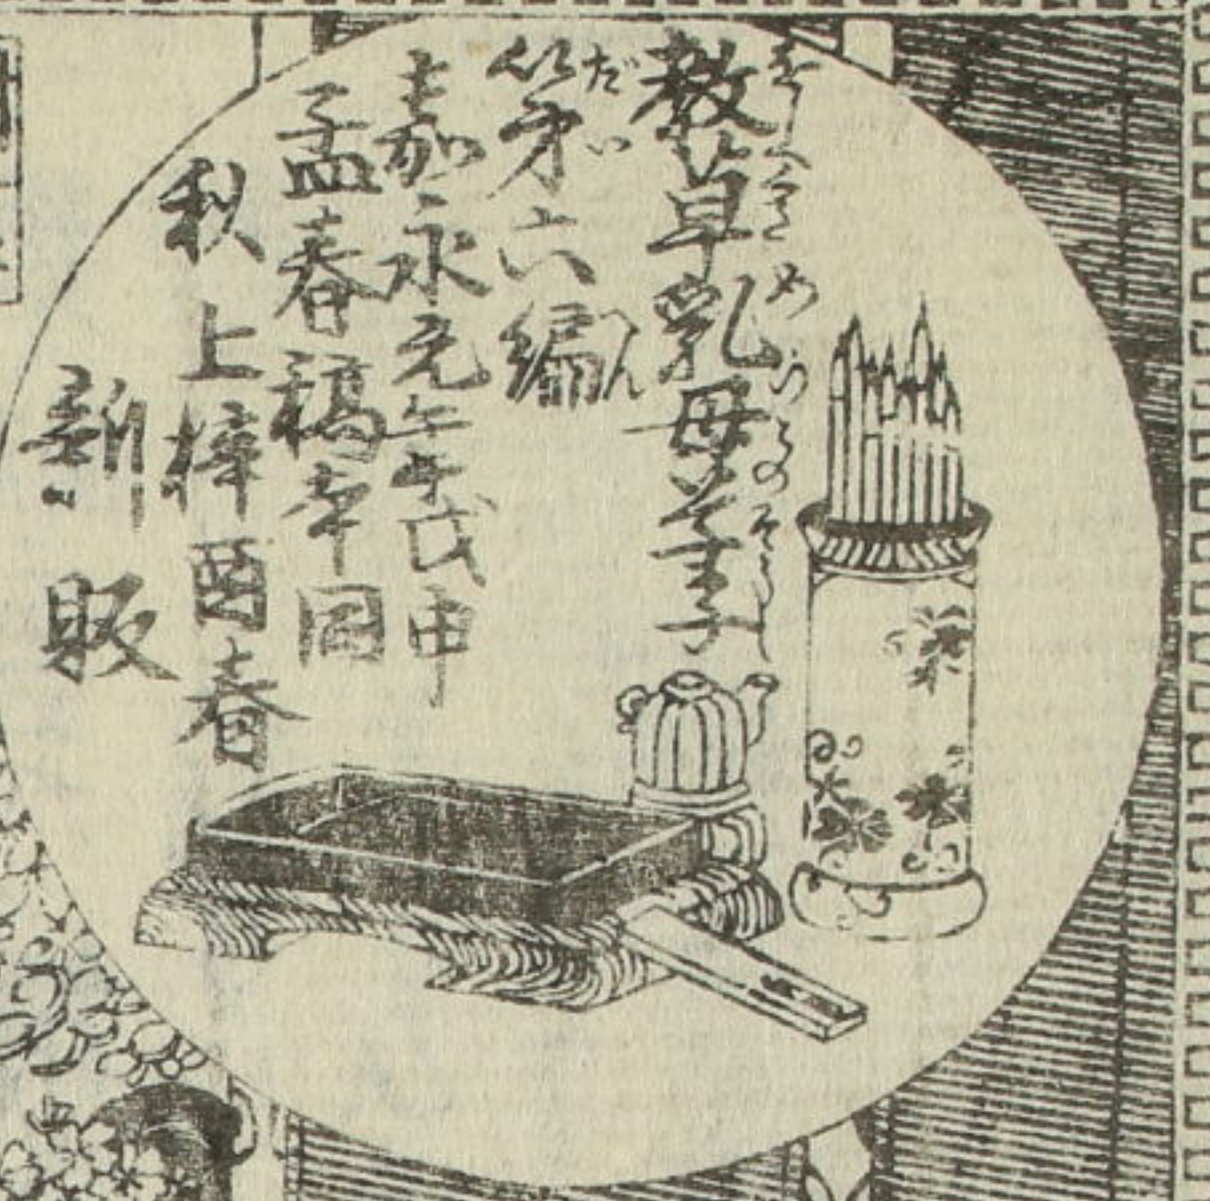 教草乳母草子
だい　へん
第六編
嘉永元年戊申
孟春稿本同
秋上梓酉春
新販